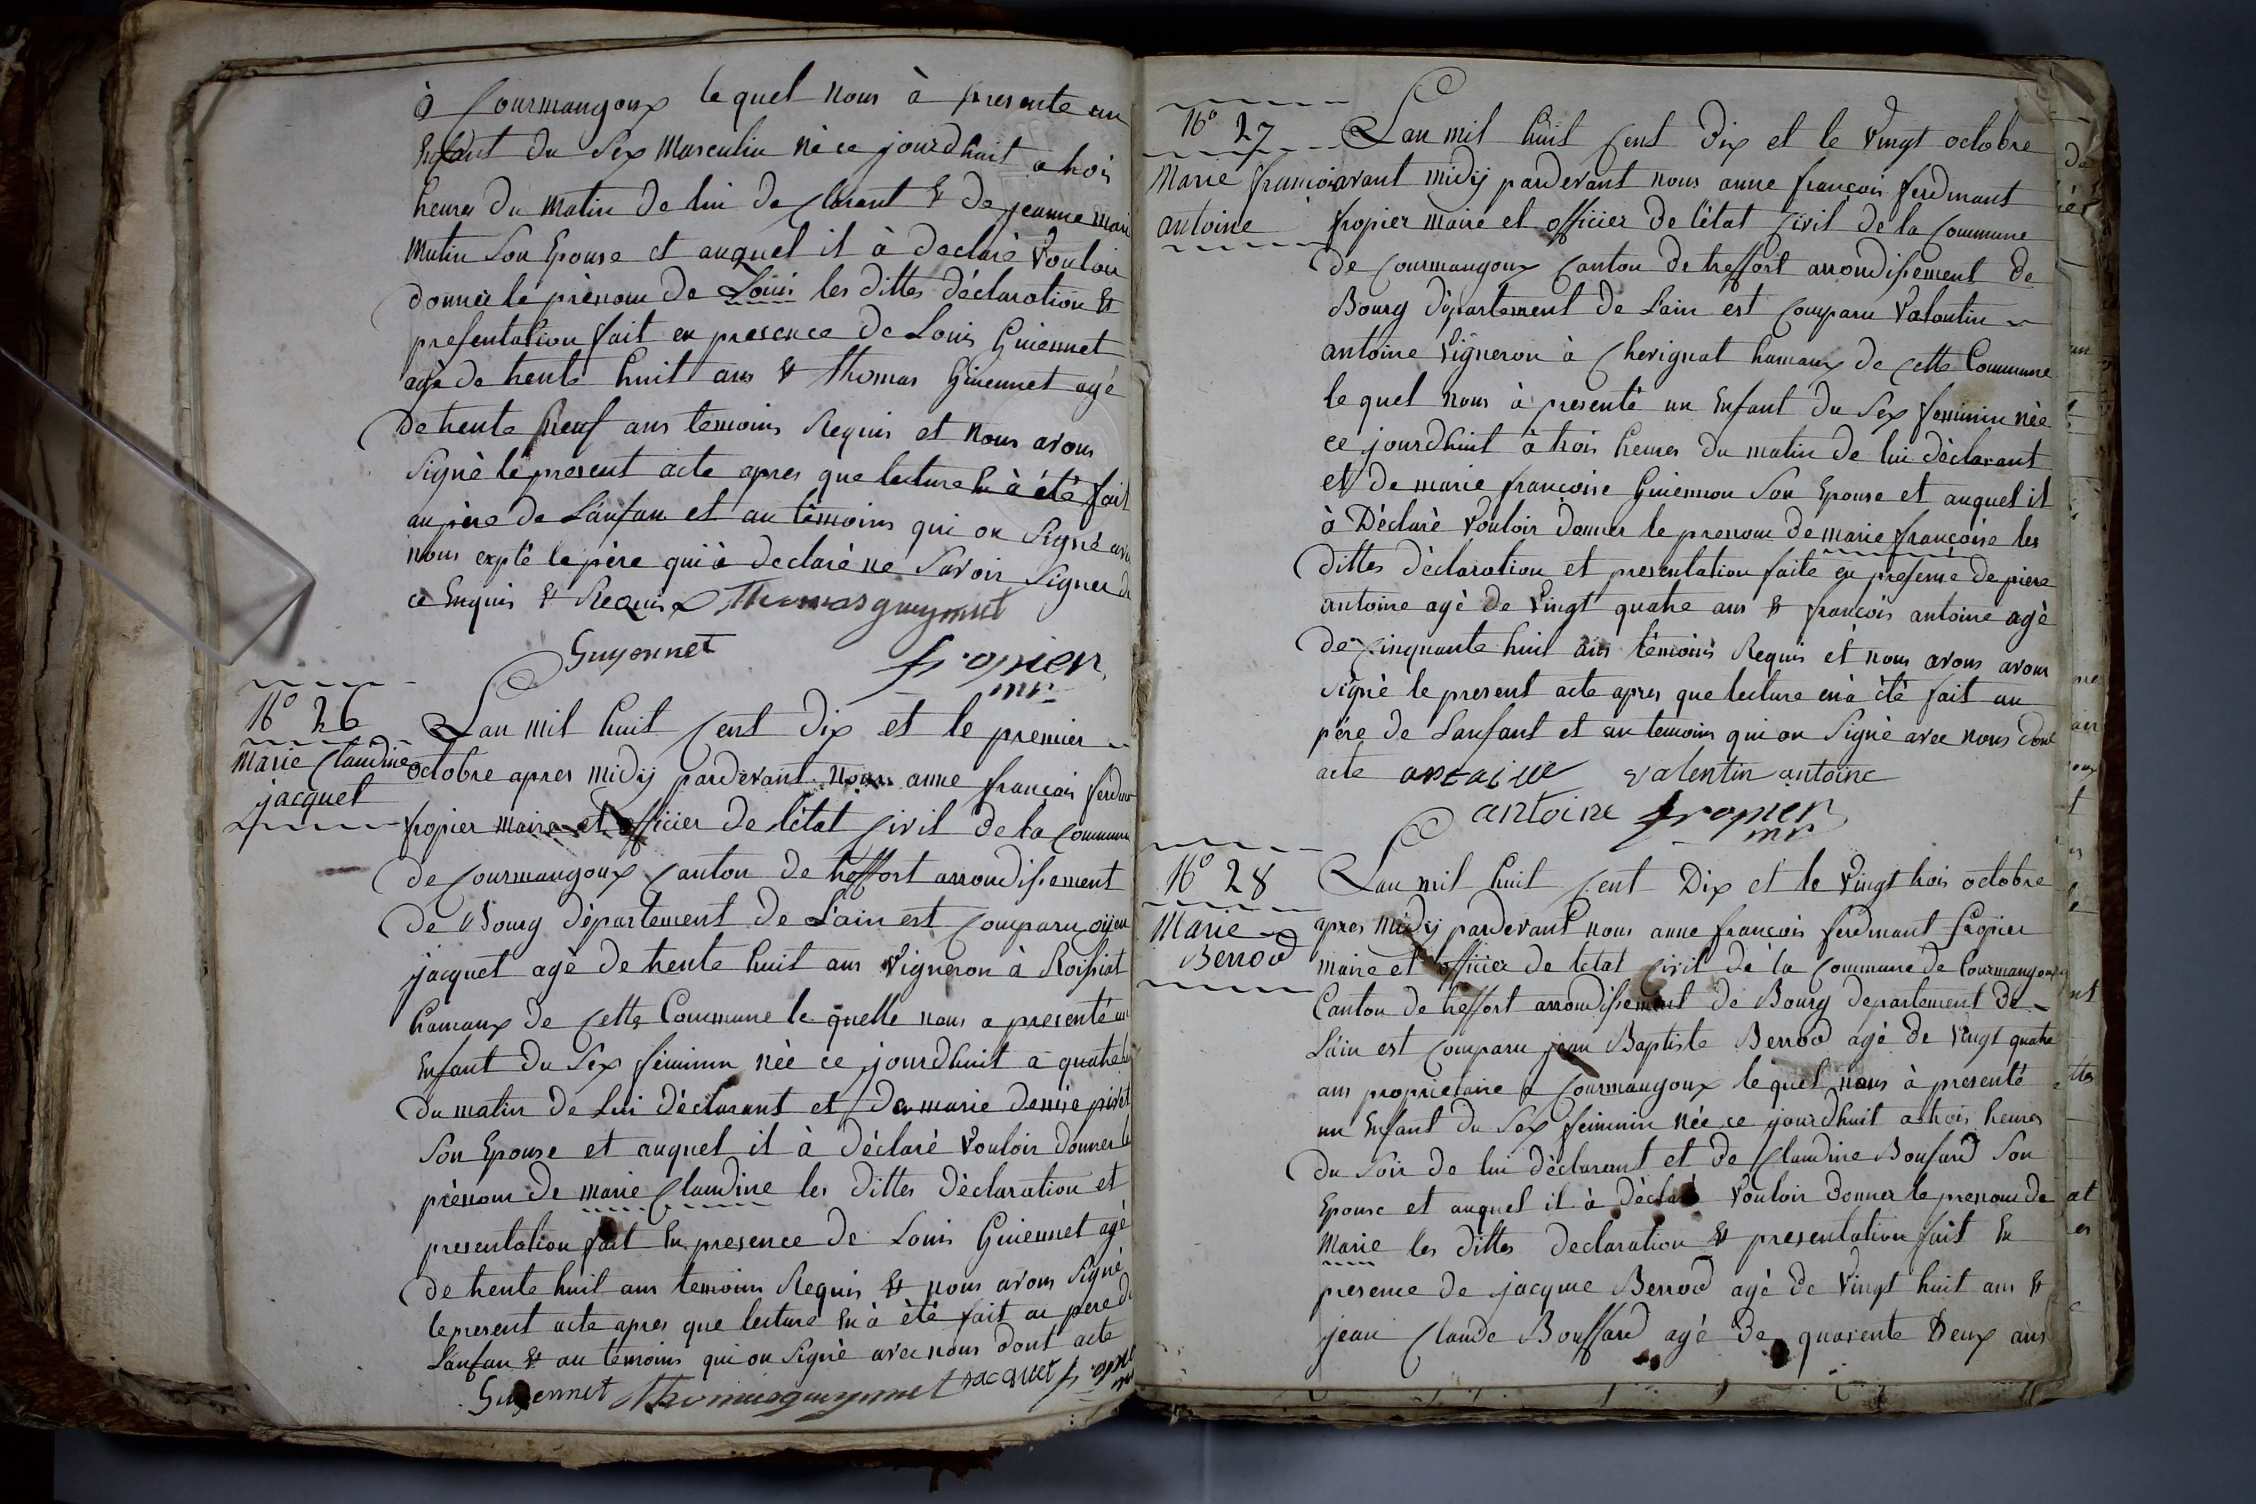 à Courmangoux le quel nous à presente un
Enfant du Sex masculin né ce jourdhuit a trois
heures du matin de lui declarant & de jeanne mari
mutin Son Epouse et auquel il à declaré Vouloir
donner le prénom de Louis les dittes déclaration &
presentation fait en presence de Louis Guiennet
agé de trente huit ans & thomas Guiennet agé
De trente Neuf ans temoins Requis et nous avons
Signé le present acte apres que lecture En à été fait
au père de L'anfan et au témoins qui on Signé avec
nous expté le père qui à declaré ne Savoir Signer de
ce Enquis & Requis thomas guyennet
Guyonnet fropier
mr
N° 26
Marie Claudine
jacquet
Lan mil huit Cent dix et le premier
octobre apres midij pardevant nous anne francois ferdin
fropier maire et officier de l'état Civil de la Commune
de Courmangoux Canton de treffort arrondissement
de Bourg département de L'ain est Comparu
jacquet agé de trente huit ans Vigneron à Roissiat
hamaux de Cette Commune le quelle nous a presenté un
Enfant du Sex féminin née ce jourdhuit a quatre
du matin de Lui déclarant et De marie denise
Son Epouse et auquel il à déclaré Vouloir donner le
prénom de marie Claudine les dittes déclaration et
presentation fait En presence de Louis Guiennet agé
de trente huit ans temoins Requis & nous avons Signé
le present acte apres que lecture En à été fait au pere de
Lanfan & au temoins qui on Signé avec nous dont acte
Guyennet thomas guyennet jacquet fropier
N° 27
Marie francoise
antoine
Lan mil huit Cent Dix et le Vingt octobre
avant midij pardevant nous anne françois ferdinant
fropier maire et officier de l'état Civil de la Commune
de Courmangoux Canton de treffort arrondissement de
Bourg département de Lain est Comparu Valentin
antoine Vigneron à Chevignat hamaux de Cette Commune
le quel nous à presenté un Enfant du Sex feminin née
ce jourdhuit à trois heures du matin de lui déclarant
et de marie francoise Guiennon Son Epouse et auquel il
à Déclaré Vouloir donner le prenom de marie françoise les
dittes déclaration et presentation faite en presence de piere
antoine agé de Vingt quatre ans & françois antoine agé
de Cinquante huit ans témoins Requis et nous avons avons
signé le present acte apres que lecture en à été fait au
père de Lanfant et au temoins qui on Signé avec nous dont
acte antoine valentin antoine
antoine fropier
mr
N° 28
Marie
Berrod
Lan mil huit Cent Dix et le Vingt trois octobre
apres midij pardevant nous anne francois ferdinant fropier
maire et officier de létat Civil de la Commune de Courmangoux
Canton de treffort arrondissement de Bourg departement de
L'ain est Comparu jean Baptiste Berrod agé de Vingt quatre
ans proprietaire a Courmangoux le quel nous à presenté
un Enfant du Sex féminin née ce jourdhuit a trois heures
du Soir de lui déclarant et de Claudine Boufard Son
Epouse et auquel il à Déclaré Vouloir donner le prenom de
Marie les dittes declaration & presentation fait En
presence de jacque Berrod agé de Vingt huit ans &
jean Claude Bouffard agé de quarente Deux ans